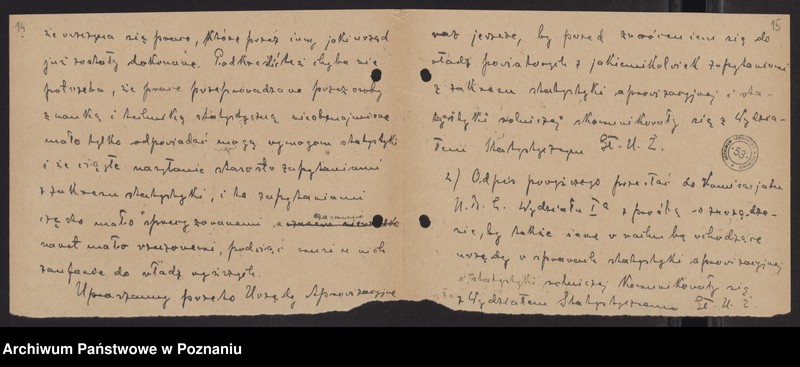 14
że wszczyna się prace, które przez inny jaki urząd
już zostały dokonane. Podkreślić też chyba nie
potrzeba, że prace przeprowadzane przez osoby
z nauką i techniką statystyczną nieobznajmione
mało tylko odpowiadać mogą wymogom statystyki
i że ciągłe nasyłanie starostw zapytaniami
z zakresu statystyki, i to zapytaniami
często mało sprecyzowanemi, a czasami
nawet mało rzeczowemi, podciąć musi w nich
zaufanie do władz wyższych.
Upraszamy przeto Urzędy Aprowizacyjne
15
raz jeszcze, by przed zwróceniem się do
władz powiatowych z jakiemikolwiek zapytaniami
z zakresu statystyki aprowizacyjnej i sta-
tystyki rolniczej skomunikowały się z Wydzia-
łem Statystycznym Gł. U. Ż.
53.
2) Odpis powyższego przesłać do Komisarjatu
N. R. L. Wydziału I a z prośbą o zarządze-
nie, by także inne w rachubę wchodzące
urzędy w sprawach statystyki aprowizacyjnej
statystyki rolniczej komunikowały się
z Wydziałem Statystycznem Gł. U. Ż.
Archiwum Państwowe w Poznaniu